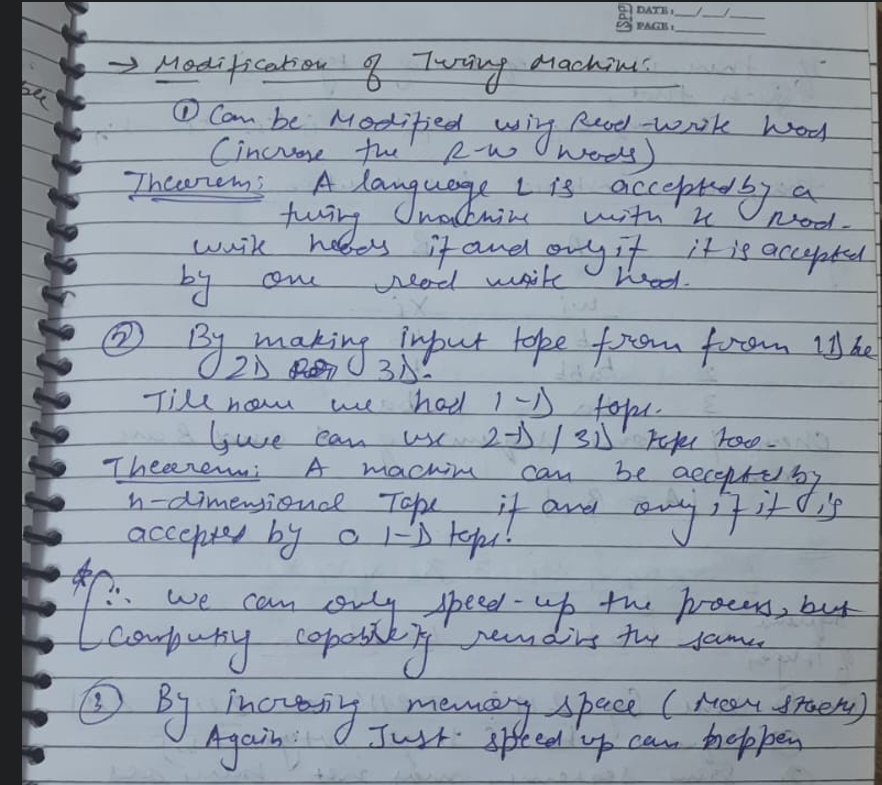 SPP DATE: __/__/__
PAGE:
→ Modification of Turing Machine:
① Can be Modified using Read-write head
(increase the R-W heads)
Theorem: A language L is accepted by a
turing machine with k read-
write heads if and only if it is accepted
by one read write head.
② By making input tape from from 1D be
2D or 3D.
Till now we had 1-D tape.
we can use 2-D / 3D tape too.
Theorem: A machine can be accepted by
n-dimensional Tape if and only if it is
accepted by a 1-D tape.
∴ we can only speed-up the process, but
Computing capability remains the same
③ By increasing memory space (More stacks)
Again: Just speed up can happen